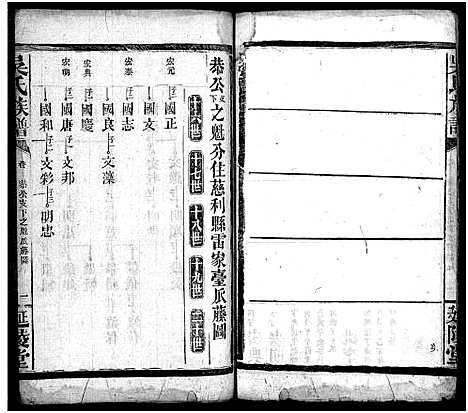 吳氏族譜
延陵堂
恭公支下之魁分住慈利縣雷家臺派藤圖
十六世 十七世 十八世 十九世 二十世
宏元 國正
國支
宏泰 國志
宏典 國慶
國良 文藻
宏朗 國唐 文邦
國和 文彩 明忠
吳氏族譜
卷
恭公支下之魁派藤圖
一 延陵堂